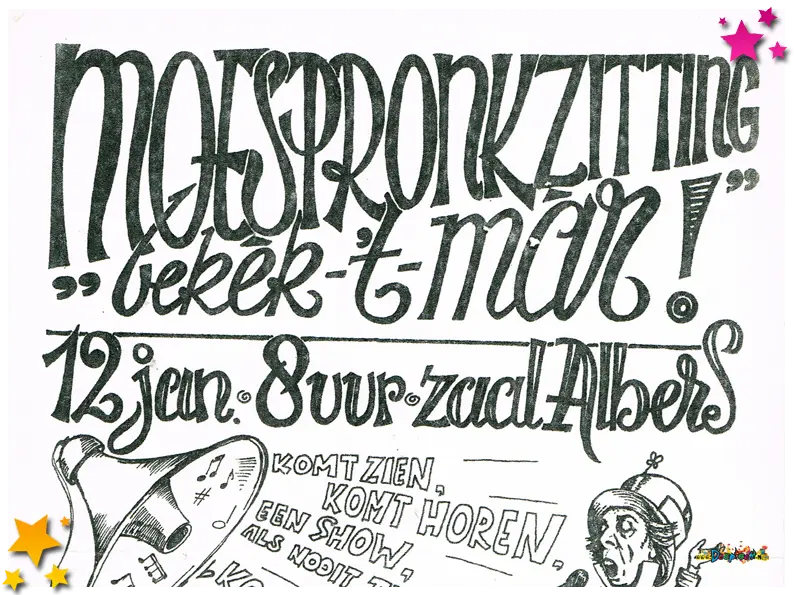 MOESPRONKZITTING
„bekêk-'t-mâr!”
12 jan. 8 uur. zaal Albers
KOMT ZIEN,
KOMT HOREN.
EEN SHOW,
ALS NOOIT